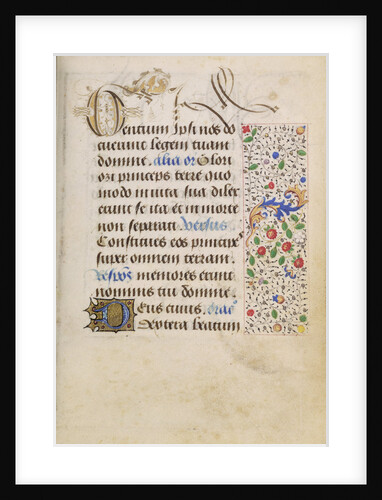 Gencium Ipsi nos do
cuerunt legem tuam
domine. alia or Glori
osi principes terre quo
modo in uita sua dilex
erunt se ita et in morte
non separati Versus
Constitues eos principes
super omnem terram.
Respons memores erunt
nominis tui domine.
Deus cuius. Orac
dextera beatum